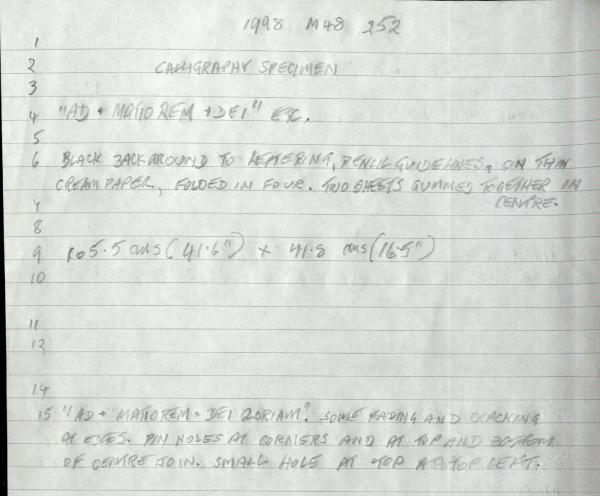 1998 M48 252
1
2 CALLIGRAPHY SPECIMEN
3
4 "AD + MATIOREM + DEI" ETC.
5
6 BLACK BACKGROUND TO LETTERING, PENCIL GUIDELINES, ON THIN
CREAM PAPER, FOLDED IN FOUR. TWO SHEETS GUMMED TOGETHER IN
7 CENTRE.
8
9 105.5 cms (41.6") x 41.8 cms (16.5")
10
11
12
14
15 "AD + MATIOREM + DEI GLORIAM". SOME FADING AND CRACKING
AT EDGES. PIN HOLES AT CORNERS AND AT TOP AND BOTTOM
OF CENTRE JOIN. SMALL HOLE AT TOP AT TOP LEFT.